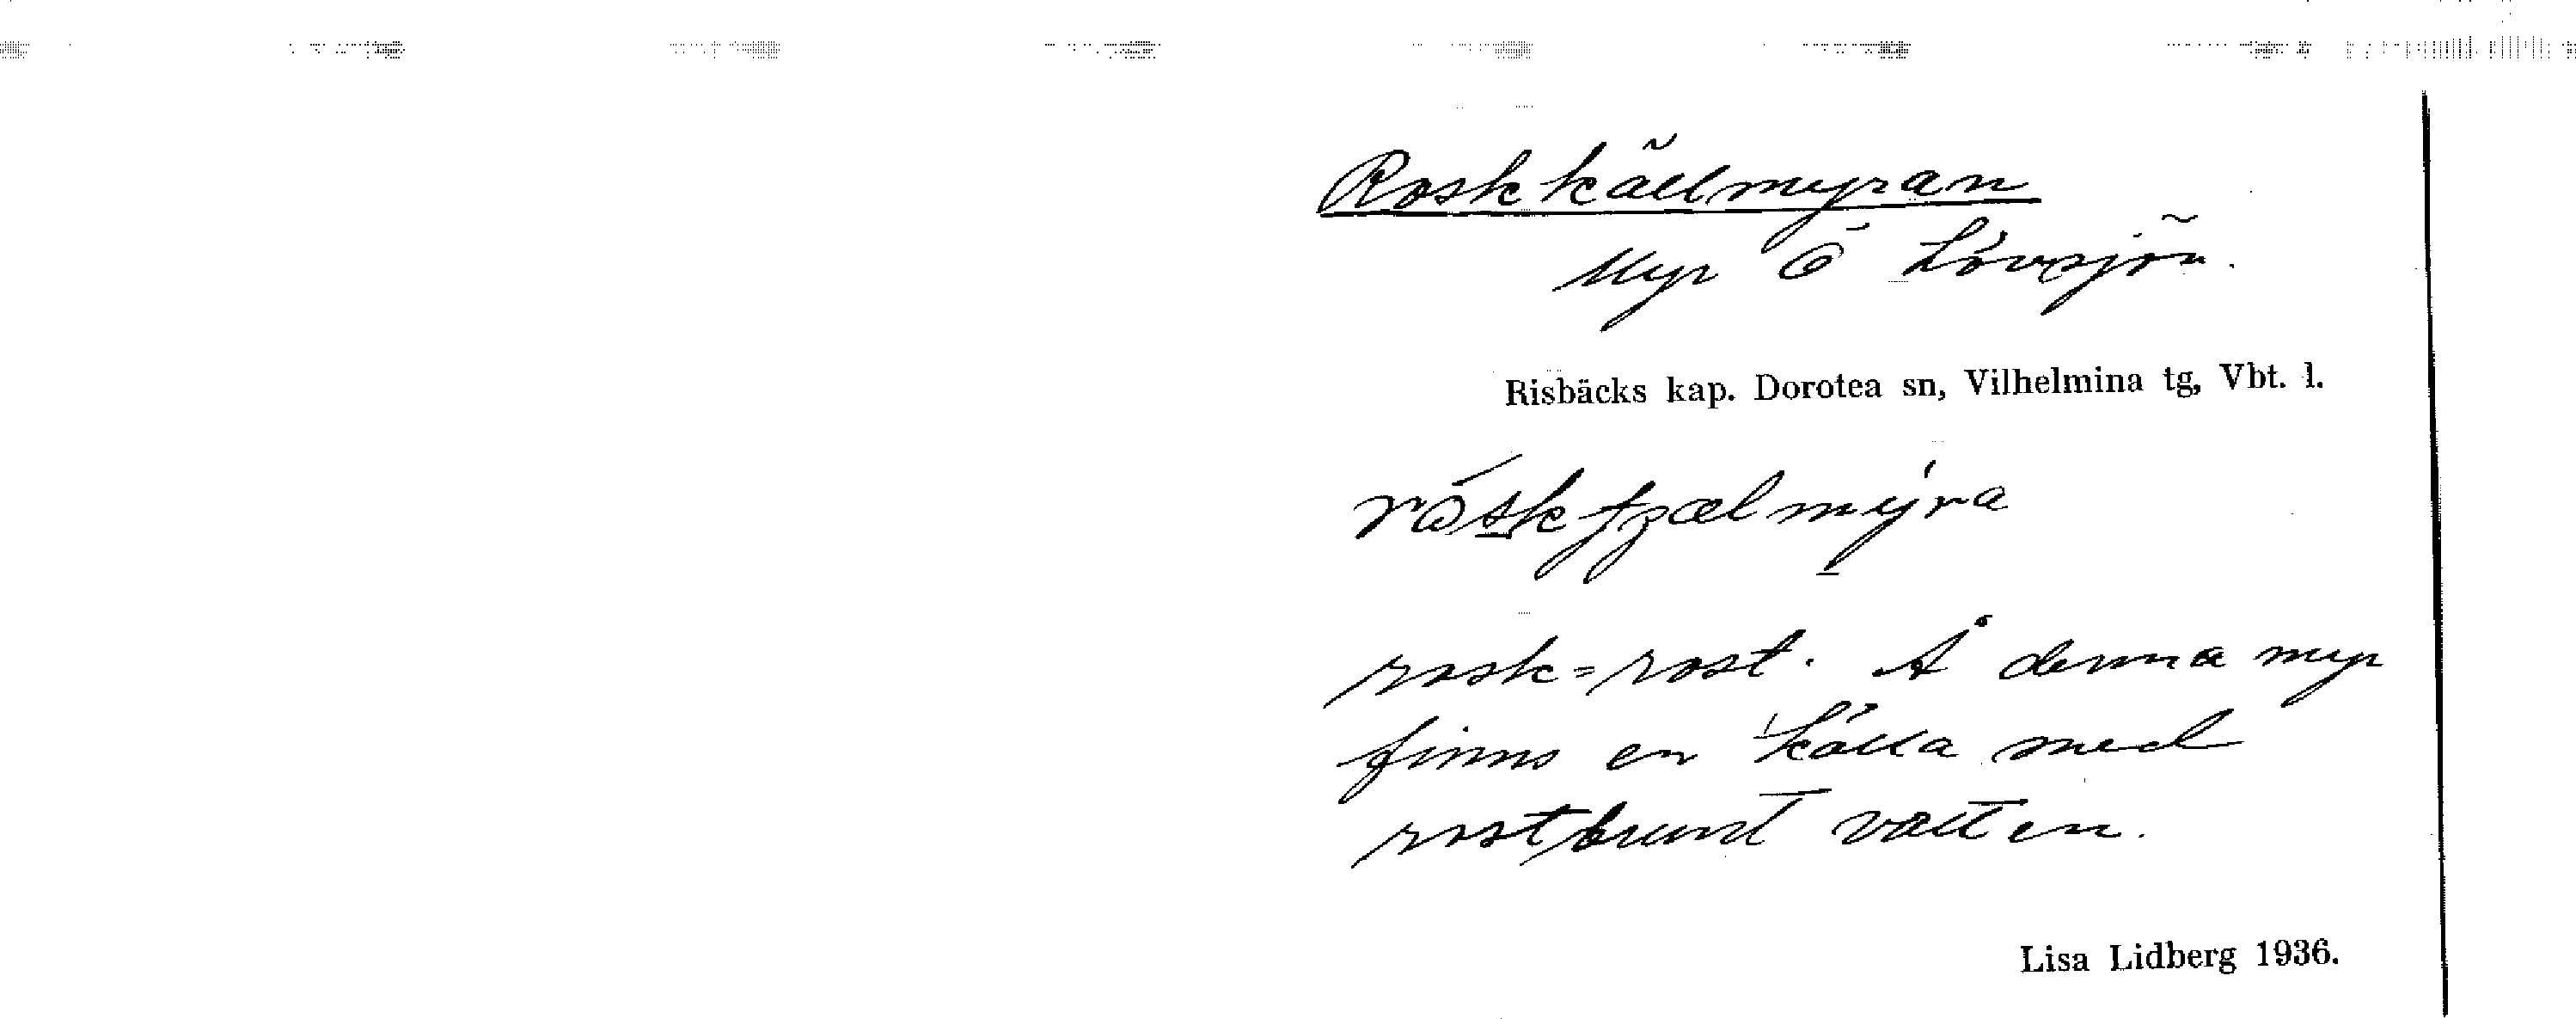 Roskkällmyran
Myr Ö Lövsjön.
Risbäcks kap. Dorotea sn, Vilhelmina tg, Vbt. l.
rosk = rost. Å denna myr
finns en källa med
rostbrunt vatten.
Lisa Lidberg 1936.